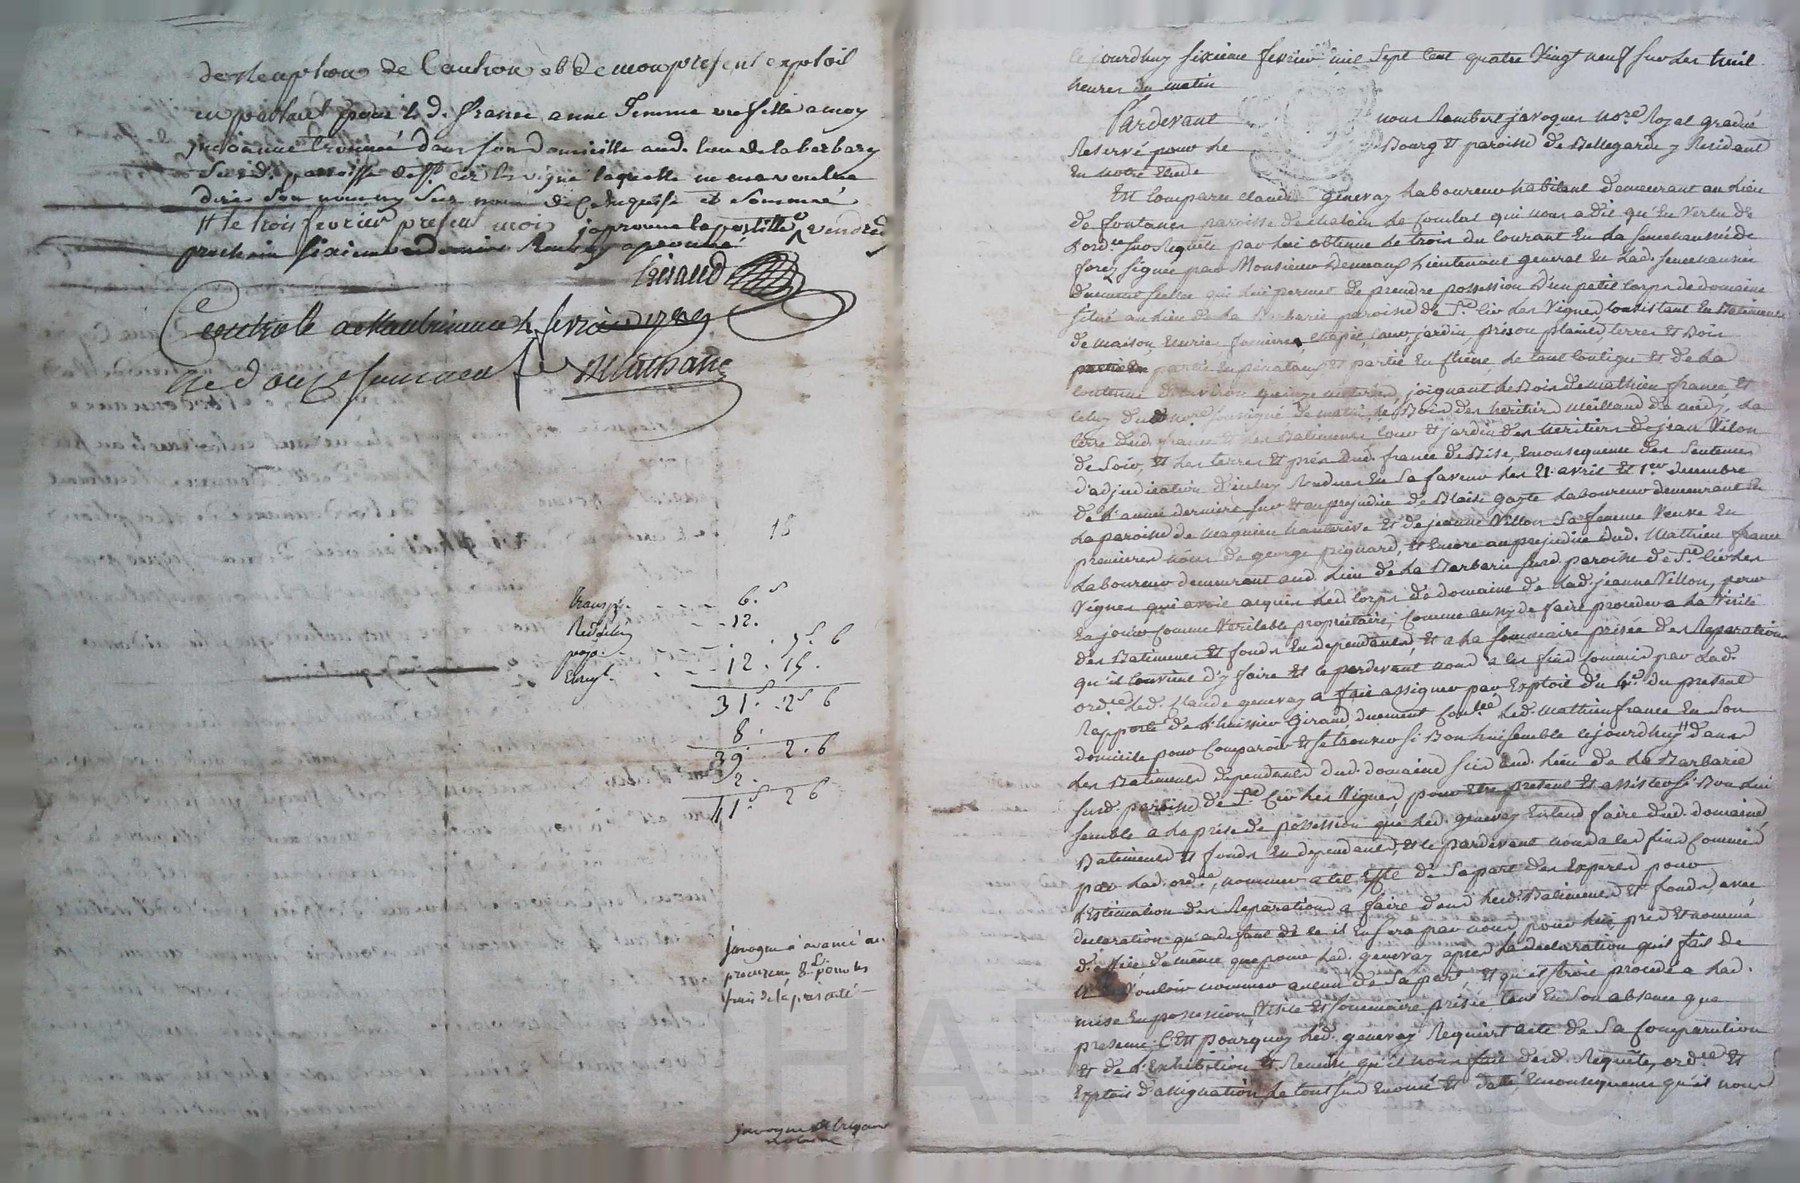 de Reception de Caution et de mon present exploit
en parlant pour led. france a une femme
trouvée dans son domicille aud. lieu de la barbary
susd. paroisse de St. cir les vignes laquelle n'a voulu
dire son nom ny sur nom de ce Enquise et sommé
# le trois fevrier present mois j'approuve la postille vendredy
prochain sixieme
Giraud
Controle a Montbrison le 4 fevrier 1789
Recd douze sous neuf d
18
6. s
12.
. 7 s. 6
12. 15.
31. 2 s 6
8.
39. 2. 6
2.
41. s 2 6
javogue a avancé au
procureur 8 l. pour les
frais de la presente
javogue
notaire
Cejourdhuy sixieme fevrier mil sept cent quatre vingt neuf sur les huit
heures du matin
Pardevant nous Rambert javogues no.re Royal gradué
Reservé pour le Bourg et paroisse de Bellegarde y Residant
En notre Etude
Est Comparu claude genevay Laboureur habitant demeurant au Lieu
de fontanes paroisse de chalain le comtal qui nous a dit qu'En Vertu de
L'ord.ce sur Requete par Lui obtenue Le trois du Courant En La senechaussée de
forez signée par Monsieur Demeaux Lieutenant general En Lad. senechaussée
duement scellée qui Lui permet de prendre possession D'un petit Corps de domaine
situé au Lieu de La Barbarie paroisse de St. Cir Les Vignes, Consistant En Batiments
de maison, Ecurie, fenieres, chapit, Cour, jardin, prés ou plaine, terres et Bois
partie En pinatau et partie En chêne, Le tout Contigu et de La
Contenue d'environ quinze meterées, joignant Le Bois de Mathieu france et
Celuy du no.re soussigné de matin, Le Bois des heritiers Meilland de midy, La
terre dud. france et Les Batiments Cour et jardin des heritiers de jean Villon
de soir, et Les terres et prés dud. france de Bise, En consequence des Sentences
d'adjudication d'iceluy Rendues En Sa faveur Les 21 avril et 1.er decembre
de L'année derniere sur et au prejudice de Blaise gayte Laboureur demeurant En
La paroisse de magnieu hauterive et de jeanne Villon sa femme Veuve En
premieres nôces de george pignard, et Encore au prejudice dud. Mathieu france
Laboureur demeurant aud. Lieu de La Barbarie susd. paroisse de St. Cir Les
Vignes qui avoit acquis Led. Corps de domaine de Lad. jeanne Villon, pour
En jouir Comme Veritable proprietaire, Comme aussy de faire proceder a La Visite
des Batiments et fonds En dependants, et a La sommaire prisée des Reparations
qu'il Convient d'y faire et le pardevant nous a ces fins Commis par Lad.
ord.ce Led. Claude genevay a fait assigner par Exploit du 4.e du present
Rapporté de L'huissier Giraud duement Con.lé Led. Mathieu france En Son
domicile pour Comparoir et se trouver si Bon Lui semble Cejourdhuy dans
Les Batiments dependants dud. domaine scis aud. Lieu de La Barbarie
susd. paroisse de St. Cir Les Vignes, pour Etre present et assister si Bon Lui
semble a La prise de possession que Led. genevay Entend faire dud. domaine
Batiments et fonds En dependants, et le pardevant nous a ces fins Commis
par Lad. ord.ce, nommer a cet Effet de Sa part des Experts pour
L'Estimation des Reparations a faire dans Lesd. Batiments et fonds, avec
declaration qu'a defaut de ce il En sera par nous pour Lui pris et nommé
d'office de même que pour Led. genevay apres La declaration qu'il fait de
Vouloir nommer aucun de Sa part, et qu'il seroit procedé a Lad.
mise En possession, Visite et sommaire prisée tant En Son absence que
presence; C'Est pourquoy Led. genevay Requiert acte de Sa Comparution
et de L'Exhibition et Remise qu'il nous fait desd. Requête, ord.ce et
Exploit d'assignation, Le tout sus Enoncé et datté, En consequence qu'il nous